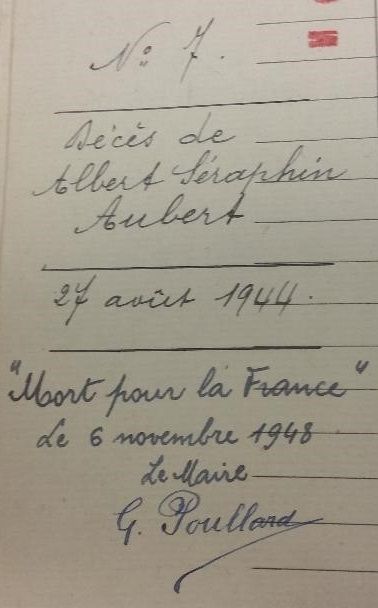 N° 7.
Décès de
Albert Séraphin
Aubert
27 août 1944.
"Mort pour la France"
Le 6 novembre 1948
Le Maire
G. Poullard